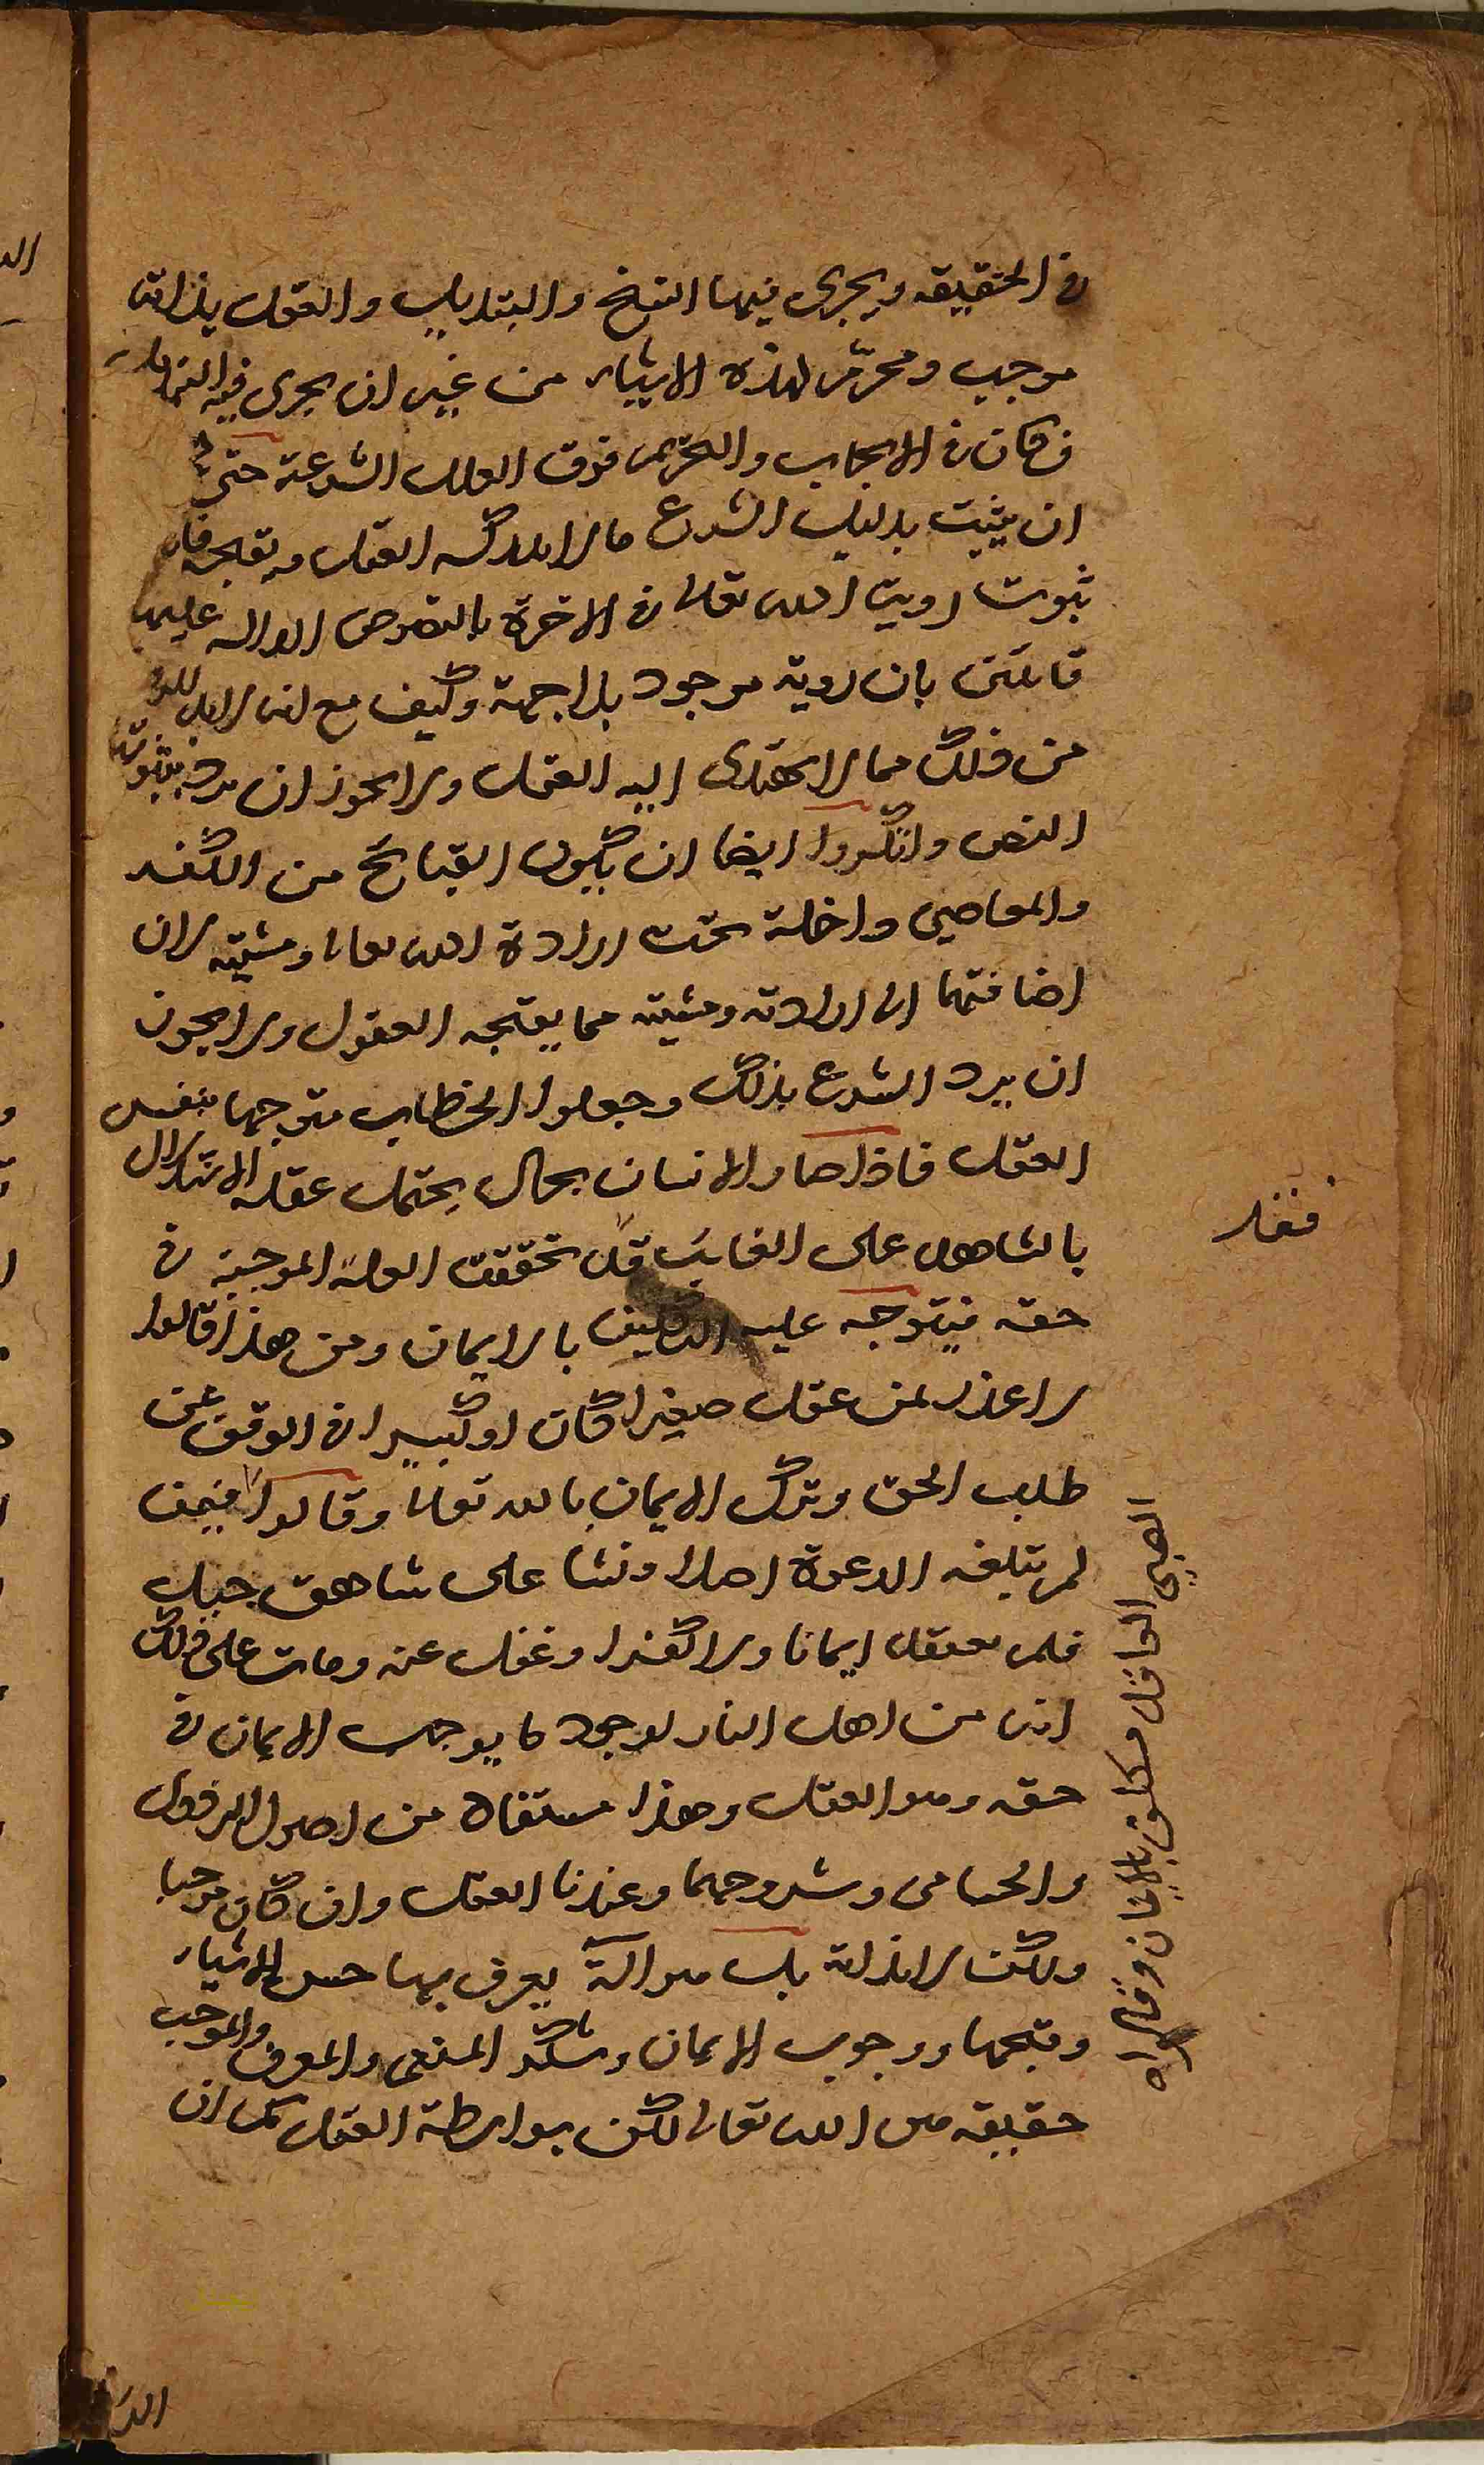 في الحقيقة ويجرى فيها النسخ والتبديل والعقل بذاته
موجب ومحرم لهذه الاشياء من غير ان يجرى فيه
فكان في الايجاب والتحريم فوق العلل الشرعية حتى
ان يثبت بدليل الشرع ما لا يدركه العقل و تقبحه
ثبوت روية الله تعالى في الاخرة بالنصوص الدالة عليها
قائلين بان روية موجود بلا جهة وكيف مع انه لا بد للروية
من ذلك مما لا يهتدى اليه العقل ولا يجوز ان يرد بثبوته
النص وانكروا ايضا ان يكون القبائح من الكفر
والمعاصي داخلة تحت ارادة الله تعالى ومشيته لان
اضافتها الى ارادته ومشيته مما يقبحه العقول ولا يجوز
ان يرد الشرع بذلك وجعلوا الخطاب متوجها بنفس
العقل فاذا صار الانسان بحال يحتمل عقله الاستدلال
بالشاهد على الغائب قد تحققت العلة الموجبة في
حقه فيتوجه عليه التكليف بالايمان ومن هذا قالوا
لا عذر لمن عقل صغيرا كان او كبيرا في الوقف عن
طلب الحق وترك الايمان بالله تعالى وقالوا فيمن
لم تبلغه الدعوة اصلا ونشا على شاهق جبل
فلم يعتقد ايمانا ولا كفرا وغفل عنه ومات على ذلك
انه من اهل النار لوجود ما يوجب الايمان في
حقه وهو العقل وهذا مستفاد من اصول البزدوى
والحسامى وشروحهما وعندنا العقل وان كان موجبا
ولكن لا لذاته بل هو الة يعرف بها حسن الاشياء
وقبحها ووجوب الايمان وشكر المنعم والمعرف والموجب
حقيقة هو الله تعالى لكن بواسطة العقل كما ان
الصبي العاقل مكلف بالايمان